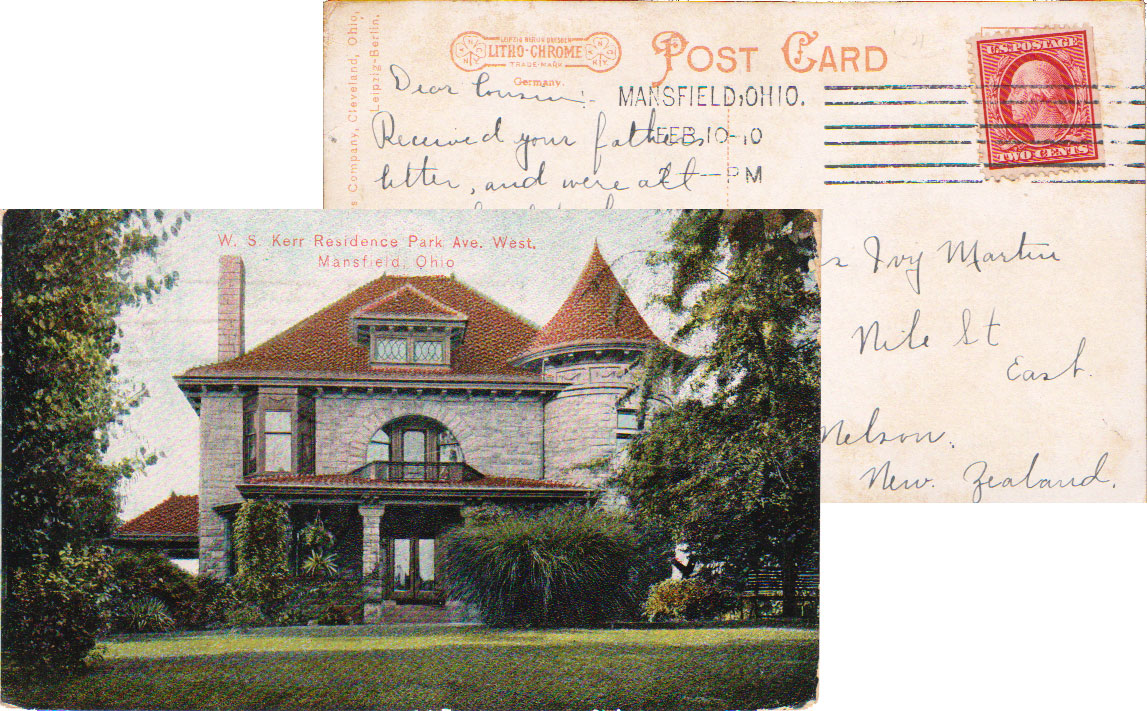 s Company, Cleveland, Ohio,
Leipzig-Berlin.
LEIPZIG BERLIN DRESDEN
LITHO-CHROME
TRADE-MARK
Germany.
POST CARD
U.S. POSTAGE
TWO CENTS
MANSFIELD, OHIO.
FEB 10-10
2 — PM
Dear Cousin:-
Received your fathers
letter, and were all
s Ivy Martin
Nile St
East.
Nelson.
New. Zealand.
W. S. Kerr Residence Park Ave. West.
Mansfield, Ohio